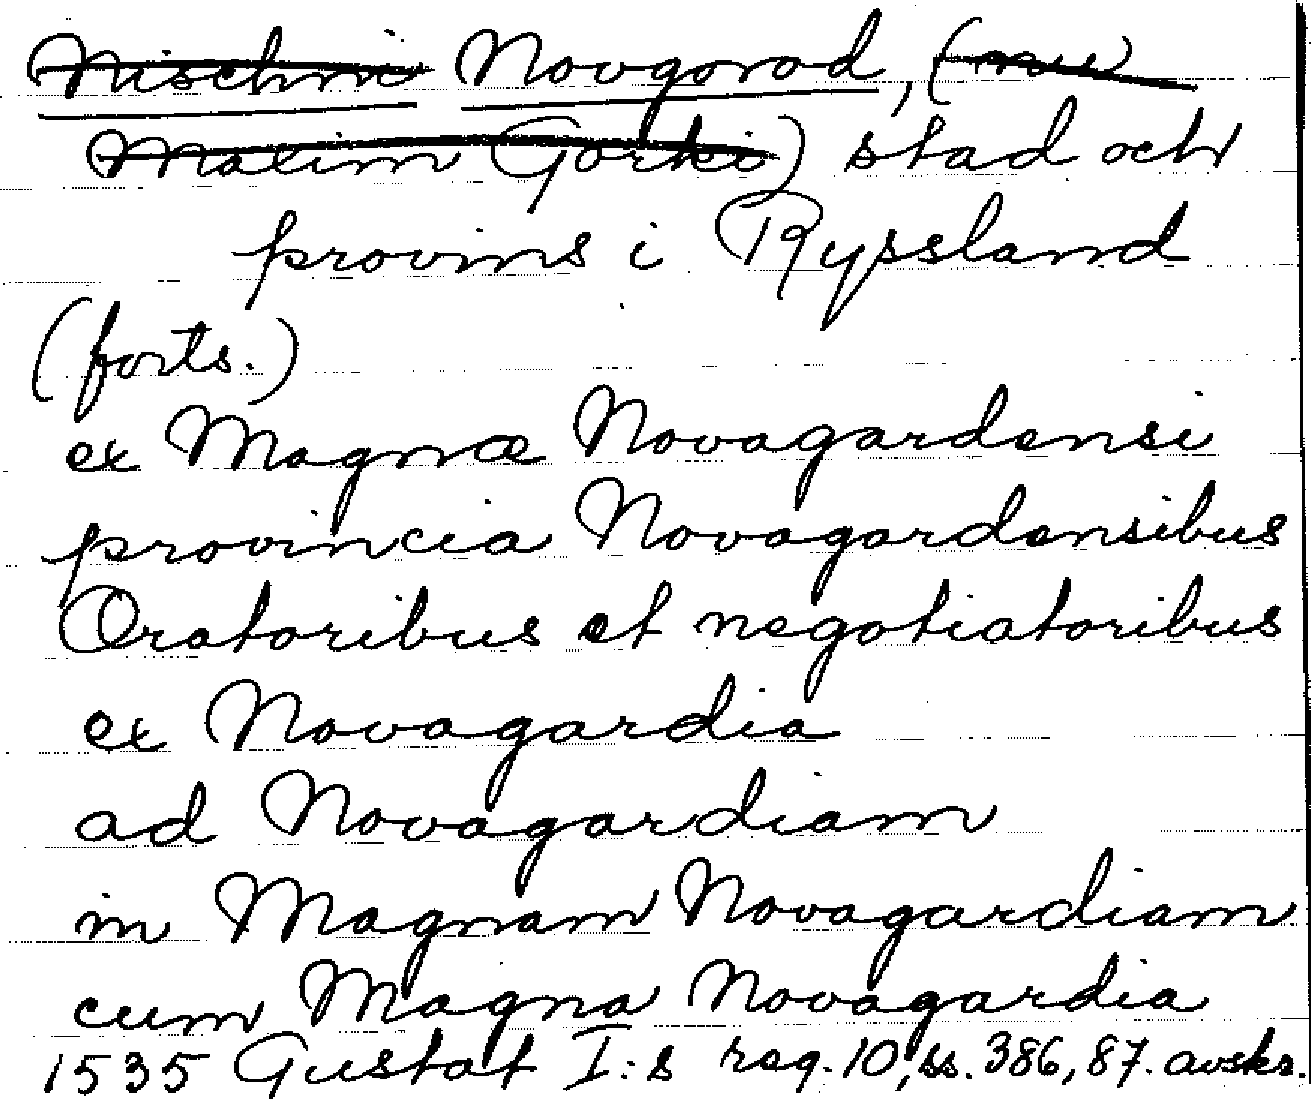 Nischni Novgorod, (nu
Maxim Gorki) stad och
provins i Ryssland
(forts.)
ex Magnæ Novagardensi
provincia Novagardensibus
Oratoribus et negotiatoribus
ex Novagardia
ad Novagardiam
in Magnam Novagardiam
cum Magna Novagardia
1535 Gustaf I:s reg. 10, ss. 386, 87. avskr.